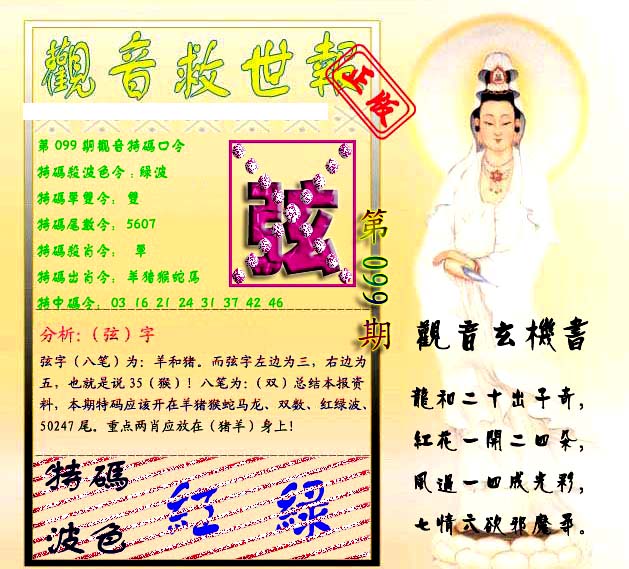 觀音救世報
正版
第099期觀音特碼口令
特碼殺波色令：緑波
特碼單雙令： 雙
特碼尾數令： 5607
特碼殺肖令： 單
特碼出肖令： 羊猪猴蛇馬
特中碼令： 03 16 21 24 31 37 42 46
弦
第099期
分析:（弦）字
弦字（八笔）为：羊和猪。而弦字左边为三，右边为
五，也就是说35（猴）！八笔为：（双）总结本报资
料，本期特码应该开在羊猪猴蛇马龙、双数、红绿波、
50247尾。重点两肖应放在（猪羊）身上！
特碼
波色
紅 緑
觀音玄機書
龍和二十出子奇，
紅花一開二四朵，
風過一四成光彩，
七情六欲邪魔畢。